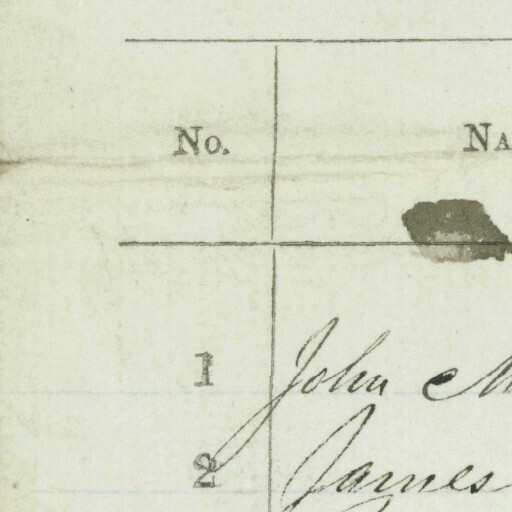 No. NA
1 John M
2 James